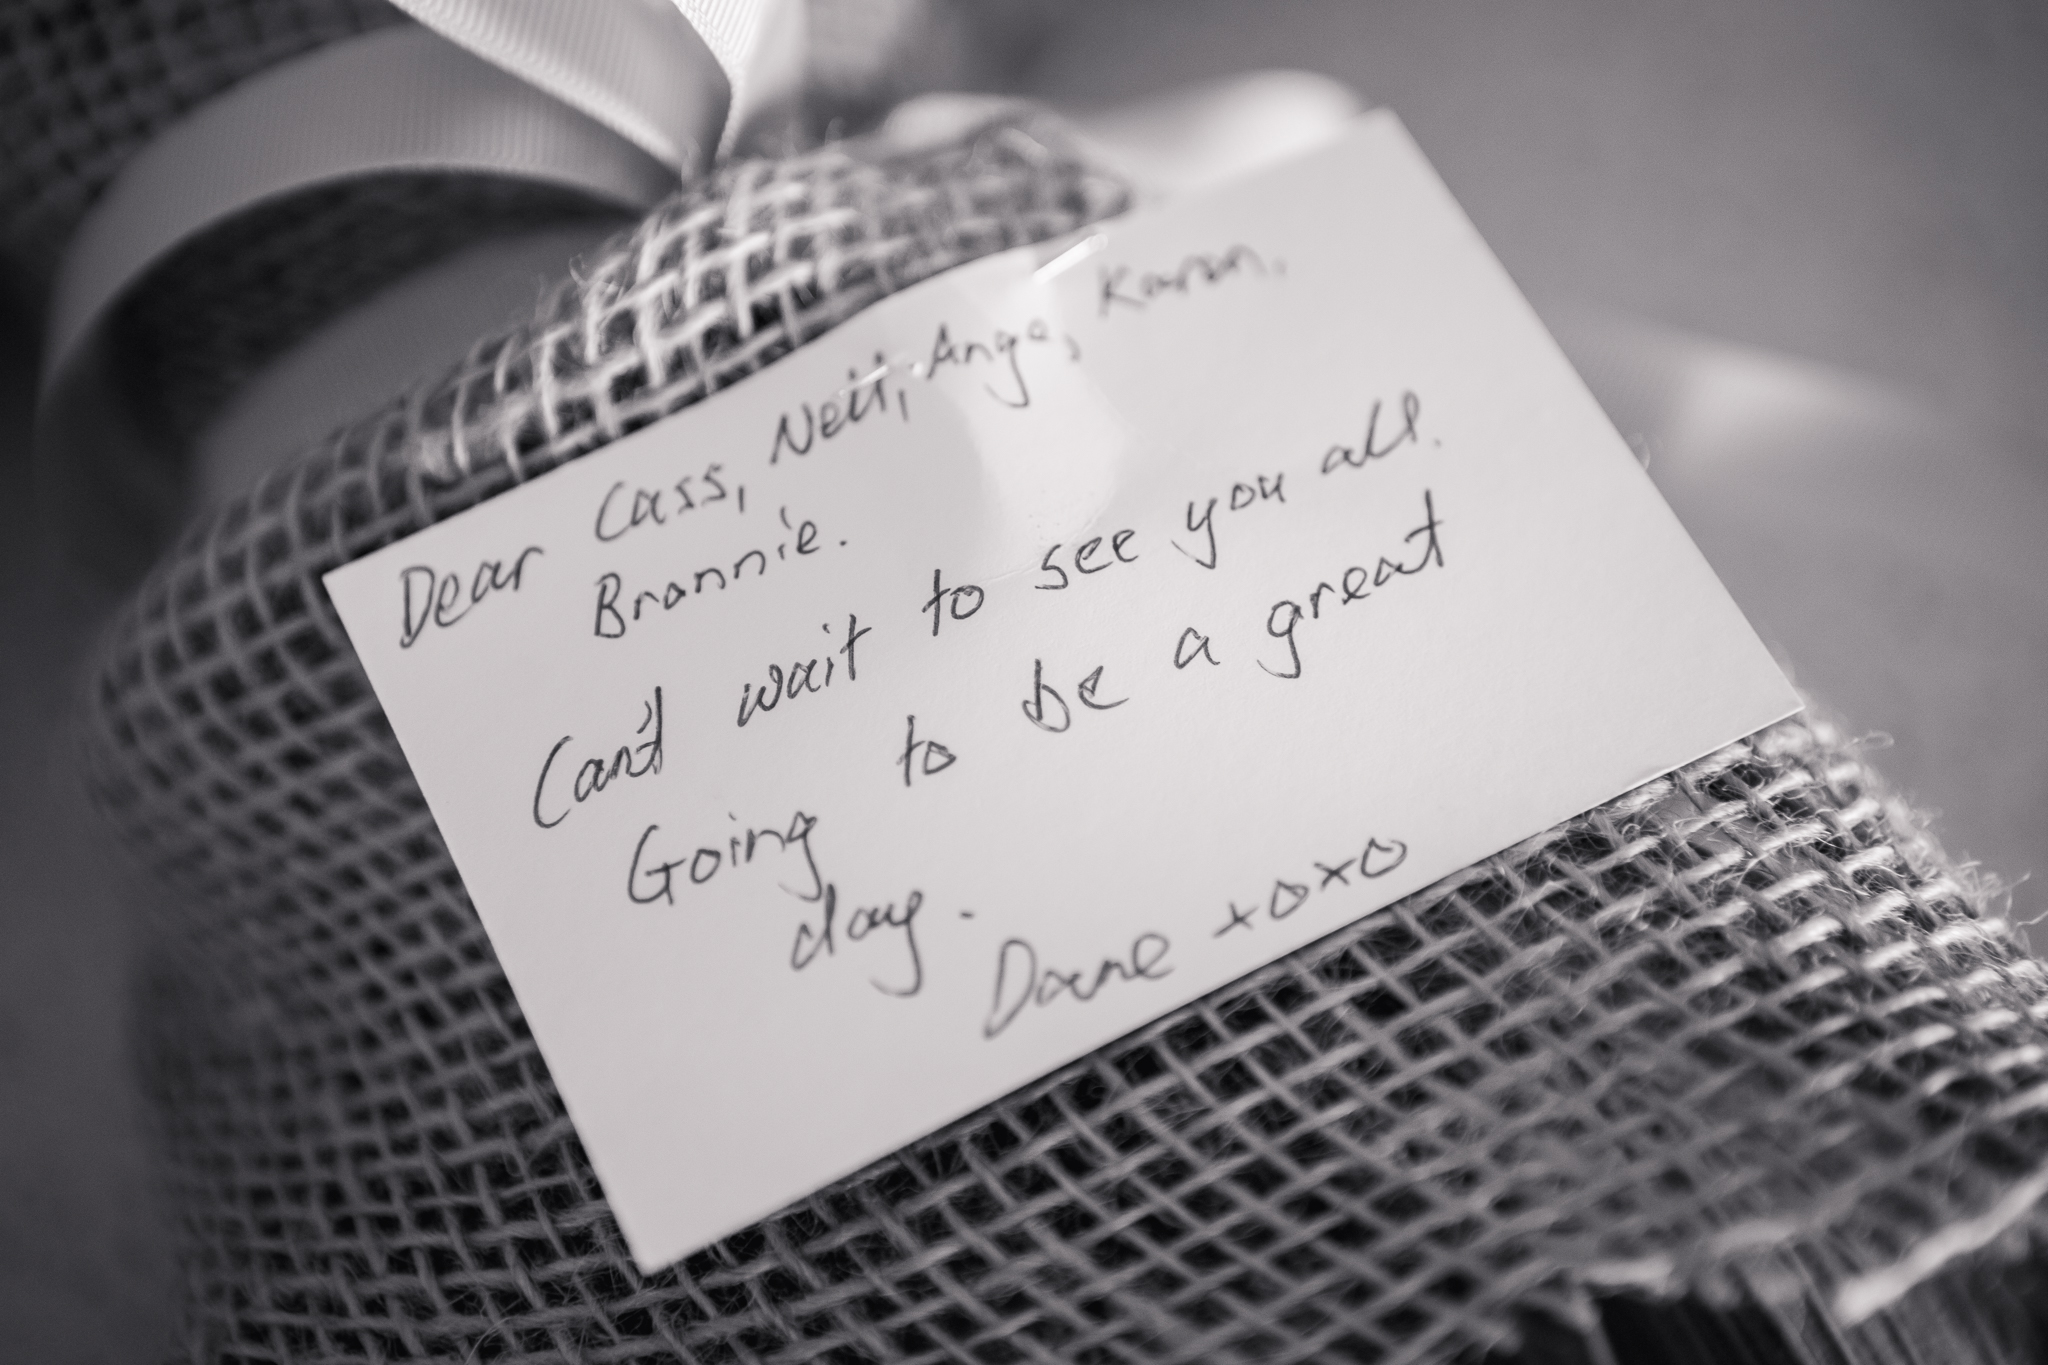 Dear Cass, Neil, Ange, Karan,
Brannie.
Can't wait to see you all.
Going to be a great
day.
Dane xoxo